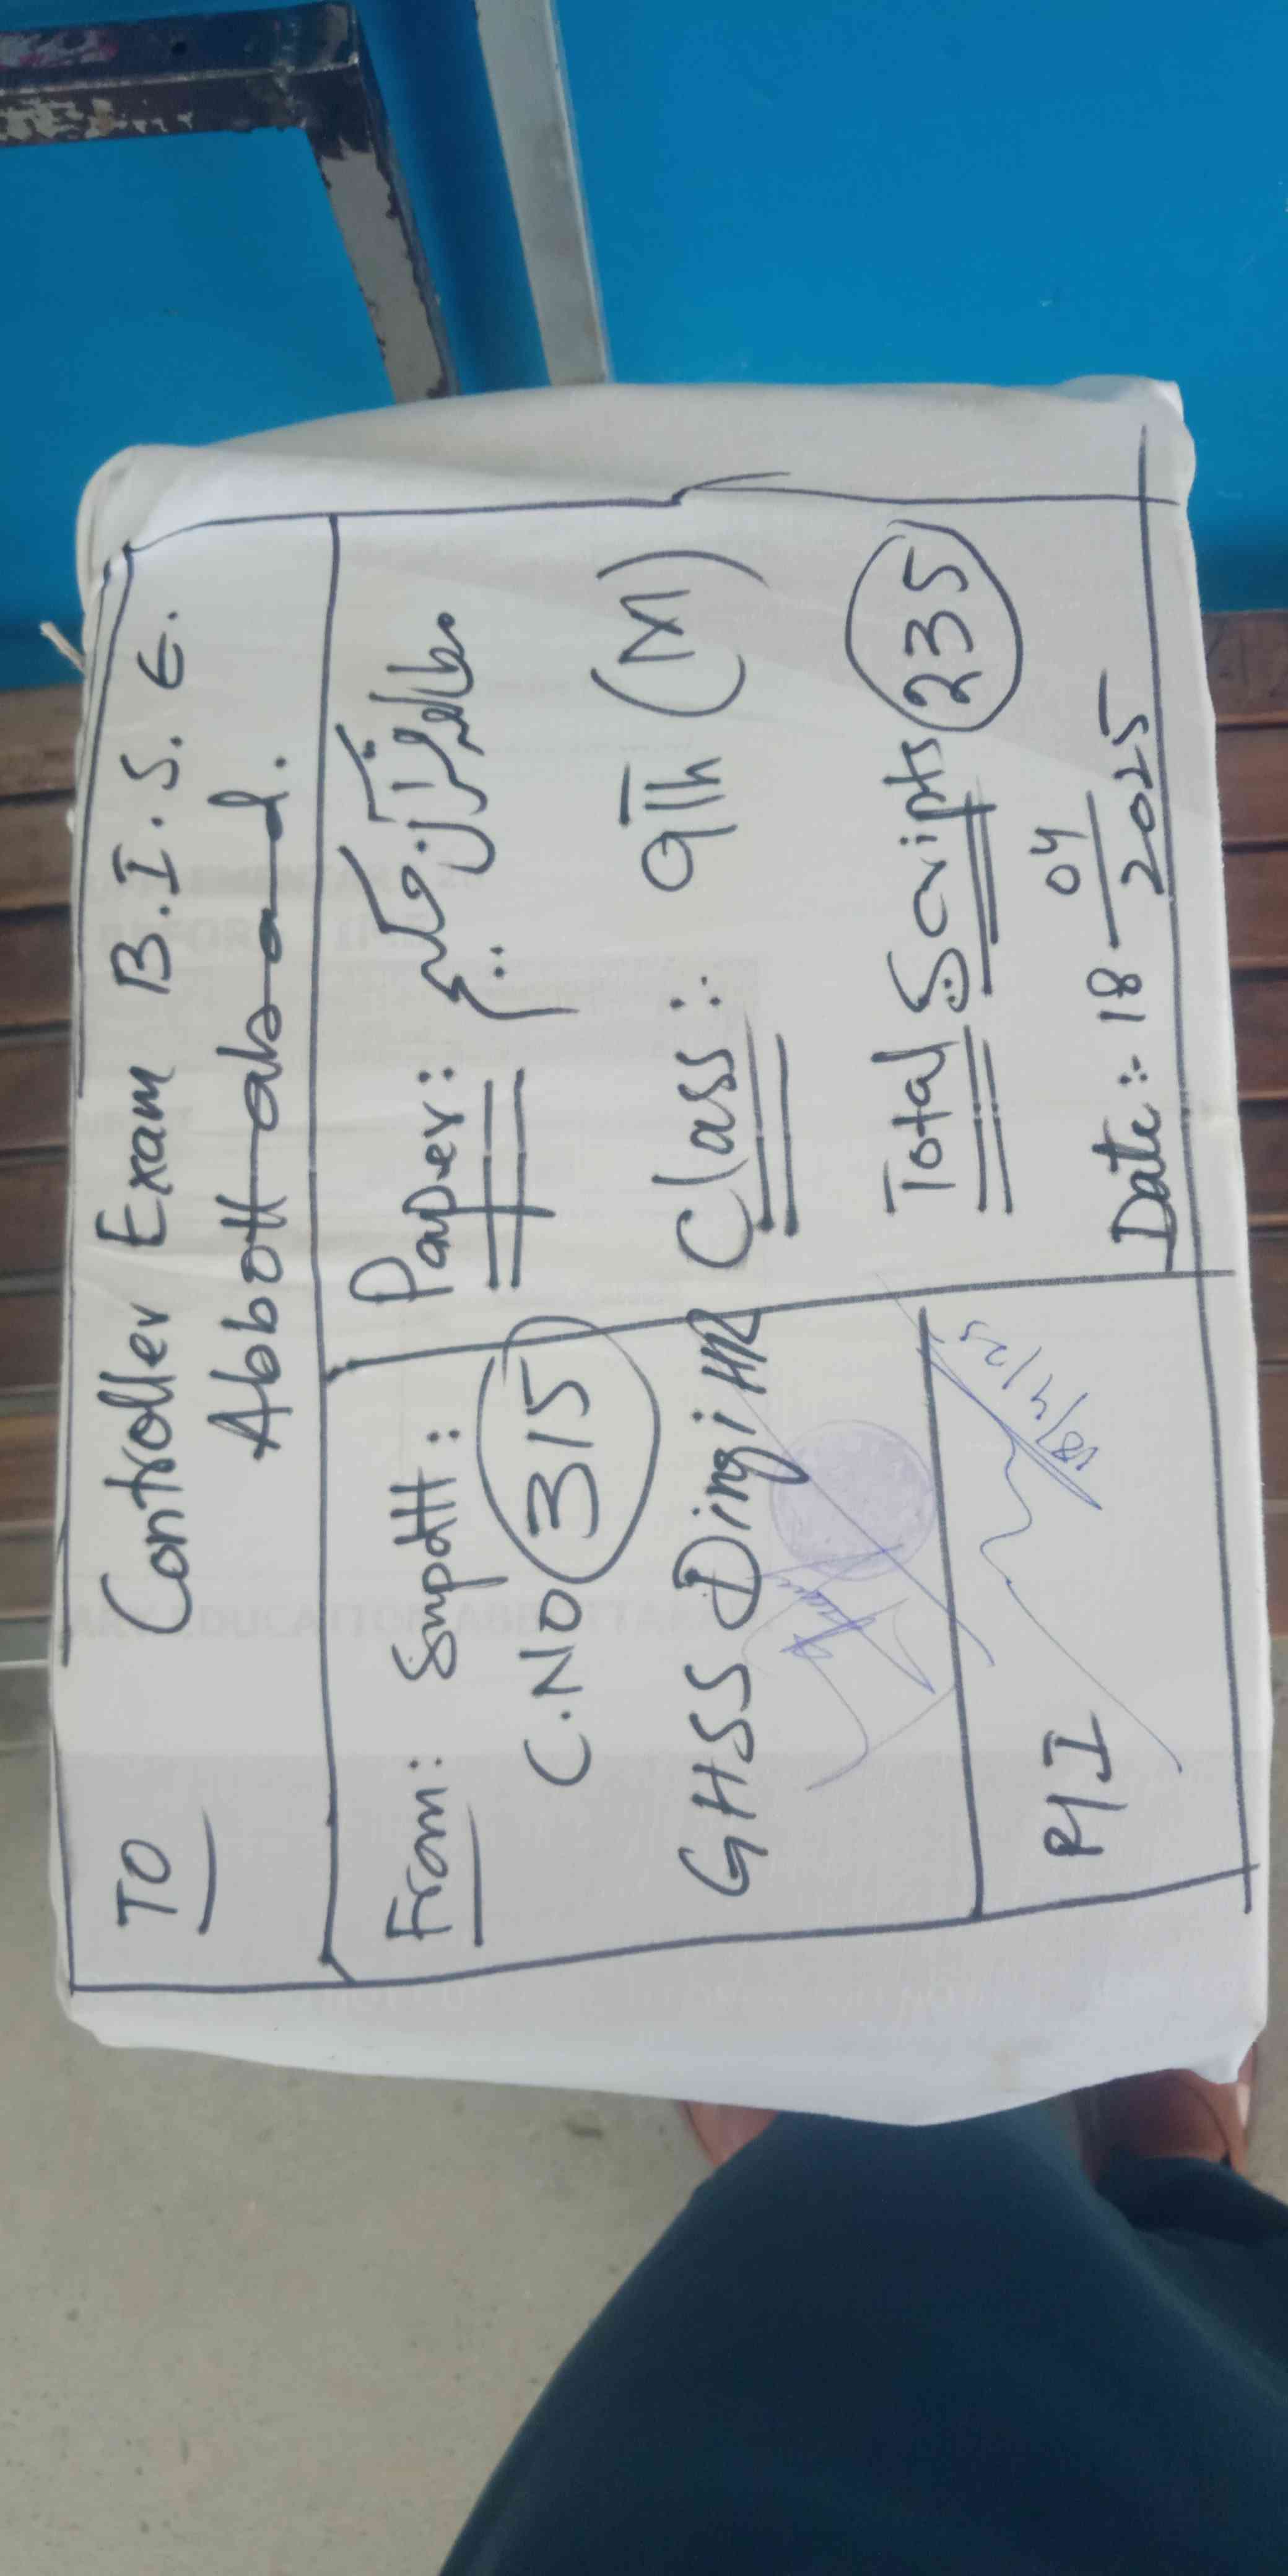 TO Controller Exam B.I.S.E.
Abbottabad.
From: Supdtt:
C.NO 315
GHSS Dingi HR
P/I
Paper: مطالعہ قرآن حکیم
Class: 9th (M)
Total Scripts 235
Date: 18 04 2025
18/4/25